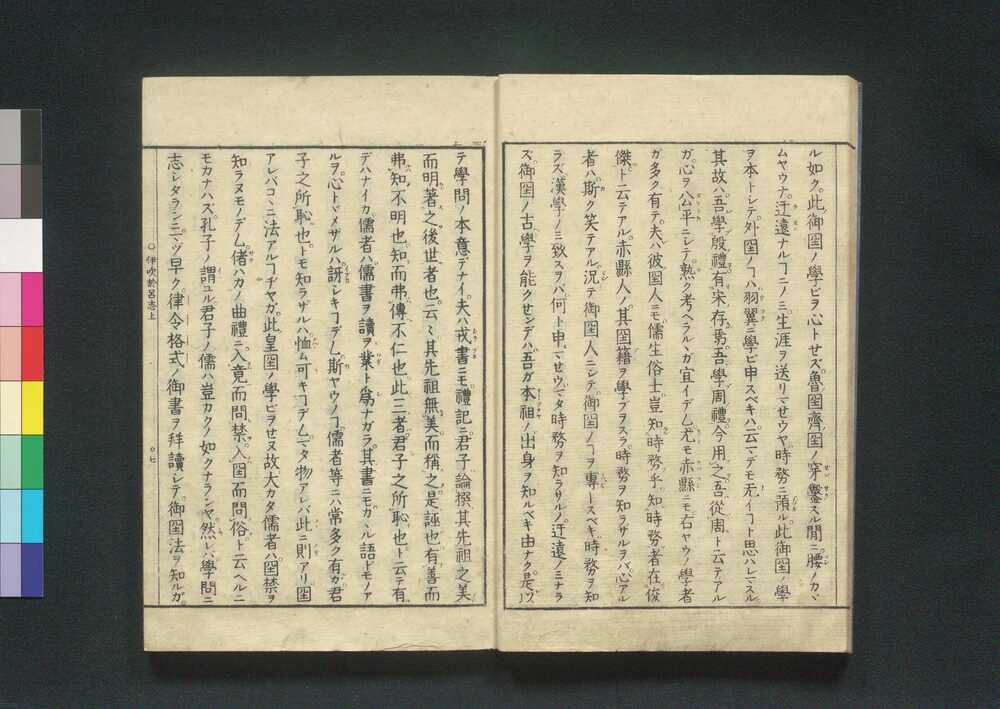 ル如ク。此御国ノ學ビヲ心トセズ。魯国齊国ノ穿鑿スル間ニ。腰ノカヾ
ムヤウナ。迂遠ナルコニノミ生涯ヲ送リマセウヤ。時務ニ預ル。此御国ノ學
ヲ本トシテ。外国ノコハ。羽翼ニ學ビ申スベキハ。云マデモ无イコト思ハレマスル
其故ハ。吾學殷禮。有宋存焉。吾學周禮。今用之。吾從周ト云テアル
ガ。心ヲ公平ニシテ。熟ク考ヘラルヽガ宜イデム。尤モ赤縣ニモ。右ヤウノ學者
ガ多ク有テ。夫ハ彼国人モ。儒生俗士。豈知時務乎。知時務者在俊
傑ト云テアル。赤縣人ノ。其国籍ヲ學ブヲスラ。時務ヲ知ラザルヲバ。心アル
者ハ。斯ク笑テアル。況テ御国人ニシテ。御国ノコヲ專ートスベキ時務ヲ知
ラズ。漢學ノミ致スヲバ。何ト申マセウ。マタ時務ヲ知ラザルノ迂遠ノミナラ
ズ。御国ノ古學ヲ能クセンデハ。吾ガ本祖ノ出身ヲ知ルベキ由ナク。是以
テ學問ノ本意デナイ。夫ハ戎書ニモ。禮記ニ。君子論撰其先祖之美。
而明著之後世者也云々。其先祖無美而稱之。是誣也。有善而
弗知。不明也。知而弗傳。不仁也。此三者。君子之所恥也。ト云テ有
デハナイカ。儒者ハ儒書ヲ讀ヲ業ト爲ナガラ。其書ニモカヽル語ドモノア
ルヲ。心トヾメザルハ。訝シキコデム。斯ヤウノコ儒者等ニハ常多ク有ガ。君
子之所恥也。トモ知ラザルハ。恤ム可キコデム。マタ物アレバ。此ニ則アリ。国
アレバコヽニ法アルコヂヤガ。此皇国ノ學ビヲセヌ故。大カタ儒者ハ国禁ヲ
知ラヌモノデム。偖ハカノ曲禮ニ。入竟而問禁。入国而問俗。ト云ヘルニ
モカナハズ。孔子ノ謂ユル君子ノ儒ハ。豈カクノ如クナランヤ。然レバ學問ニ
志シタランニハ。マヅ早ク律令格式ノ御書ヲ拜讀シテ。御国法ヲ知ルガ。
○伊吹於呂志上
○七